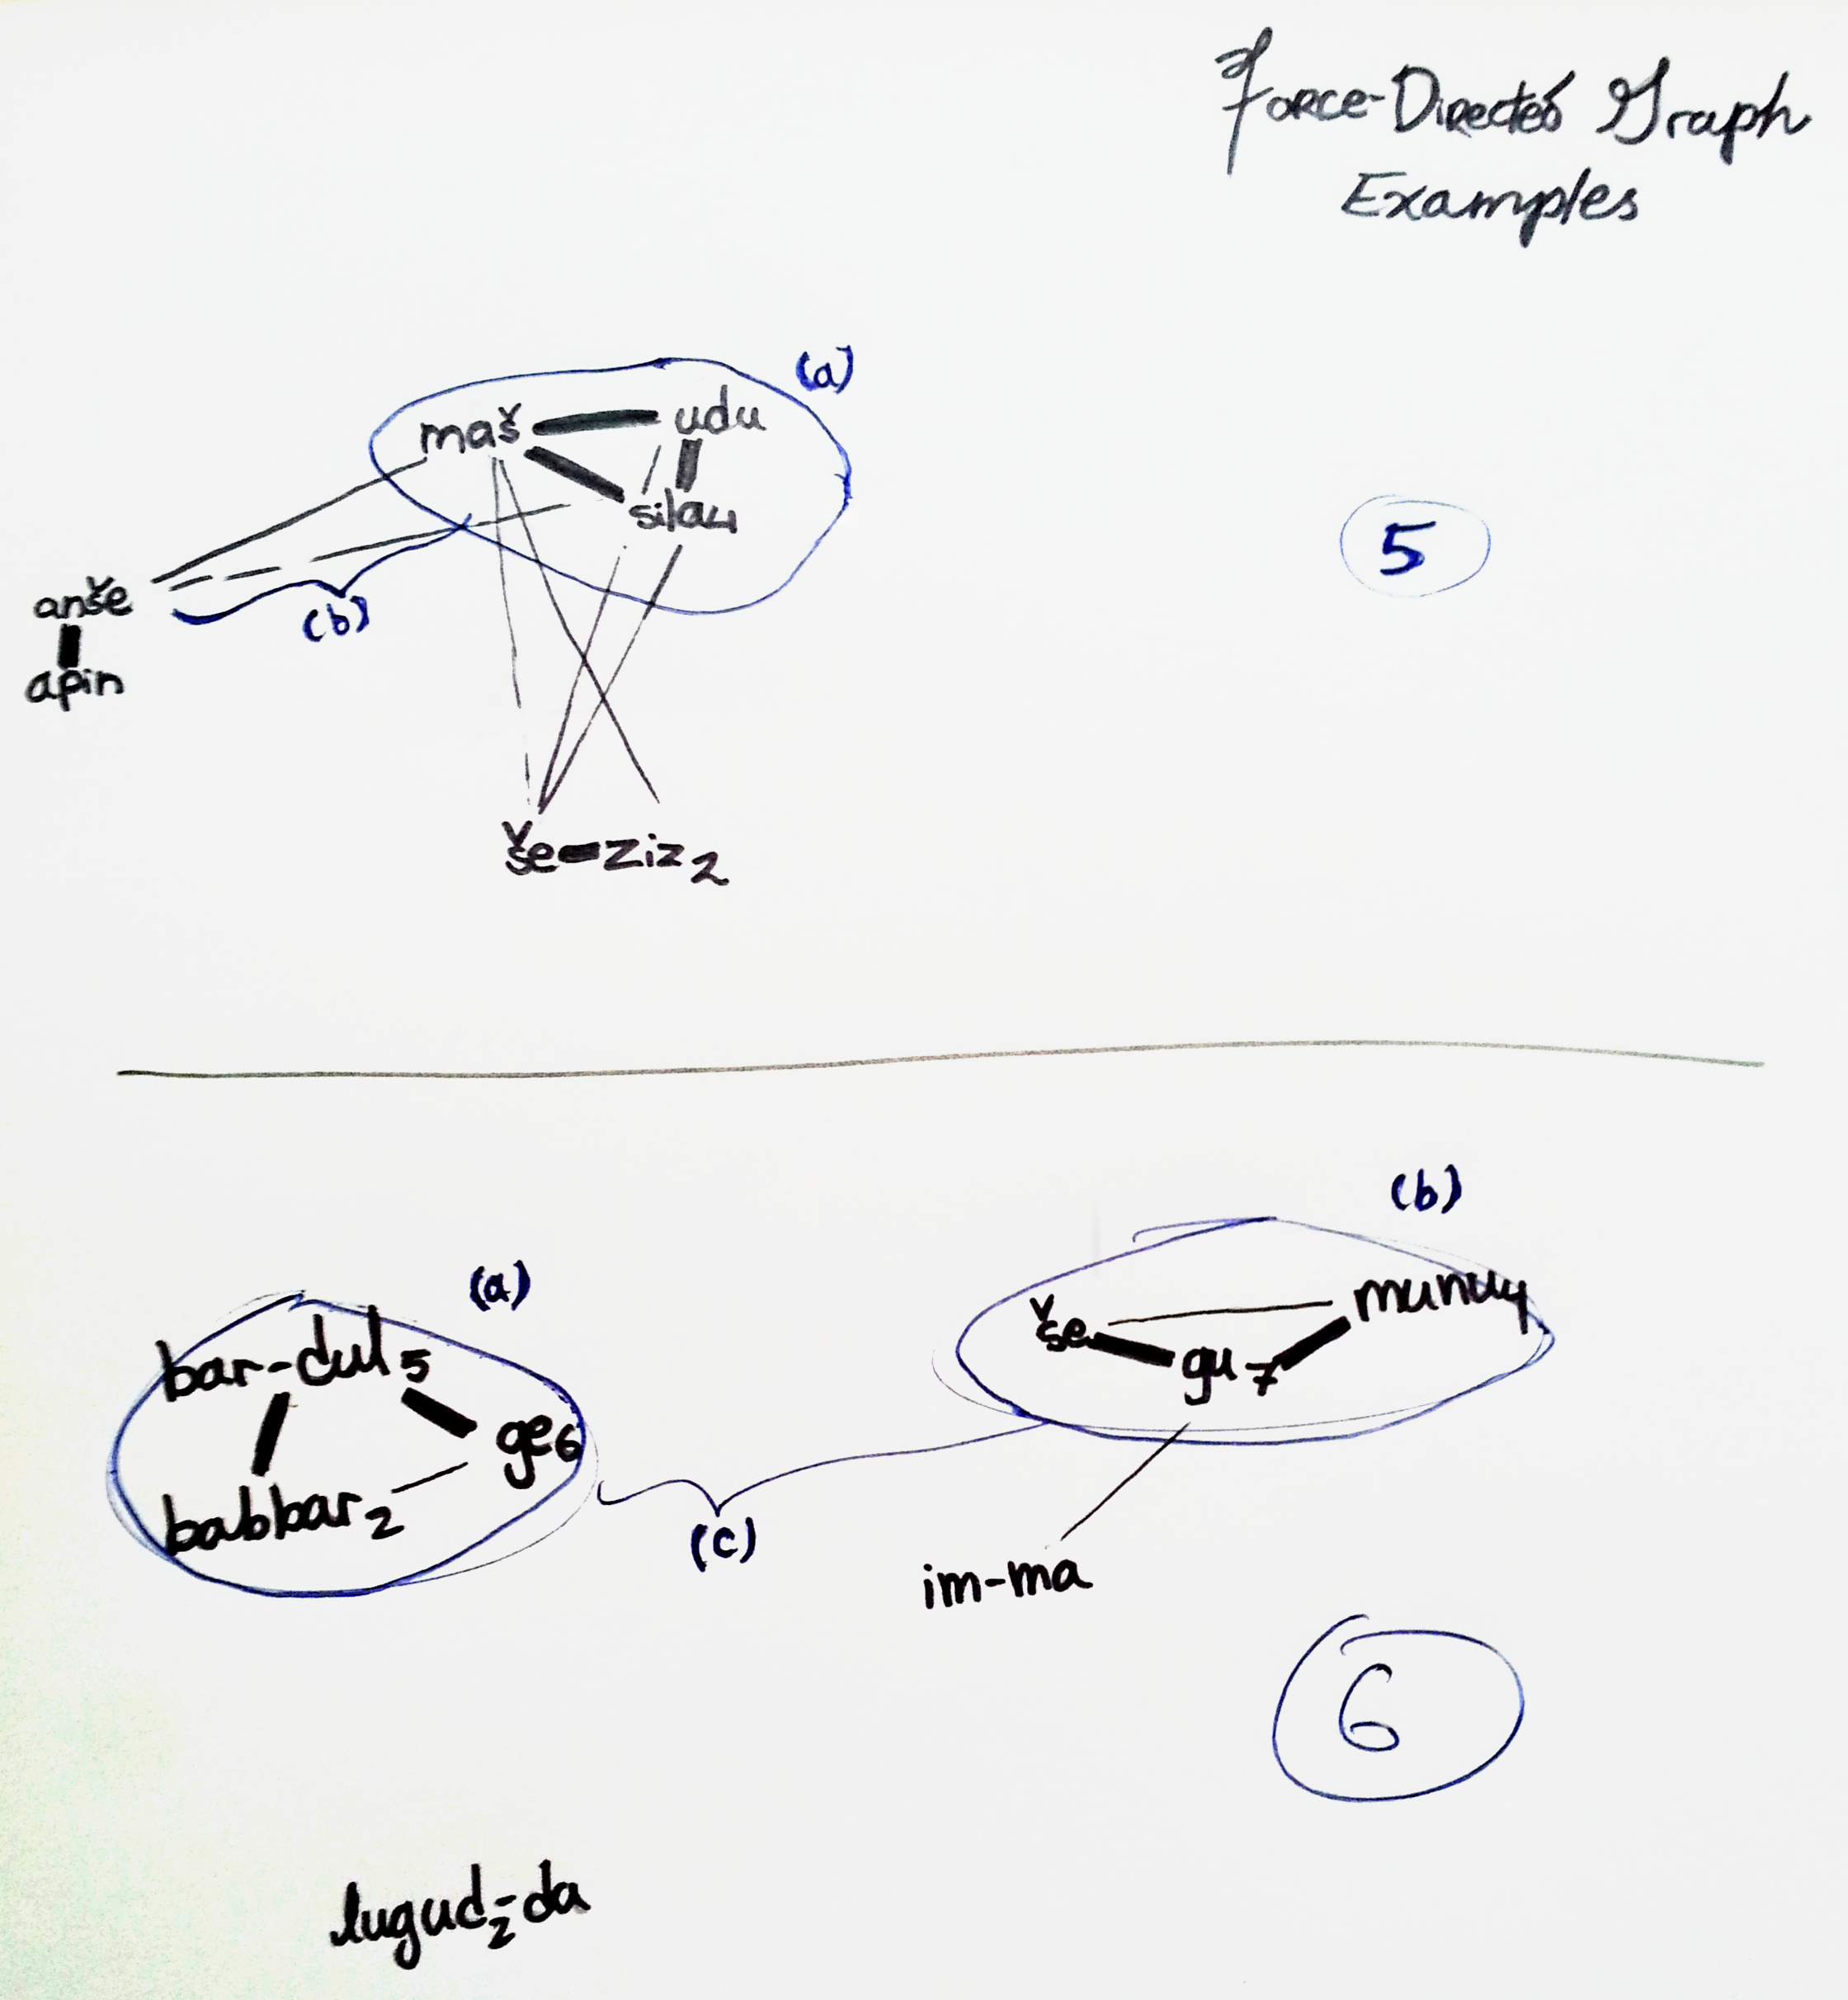 Force-Directed Graph
Examples
(a)
maš udu
sila4
5
anše
(b)
apin
še ziz2
(b)
(a)
munu4
še
gu7
bar-dul5
ge6
babbar2
(c)
im-ma
6
lugud2-da